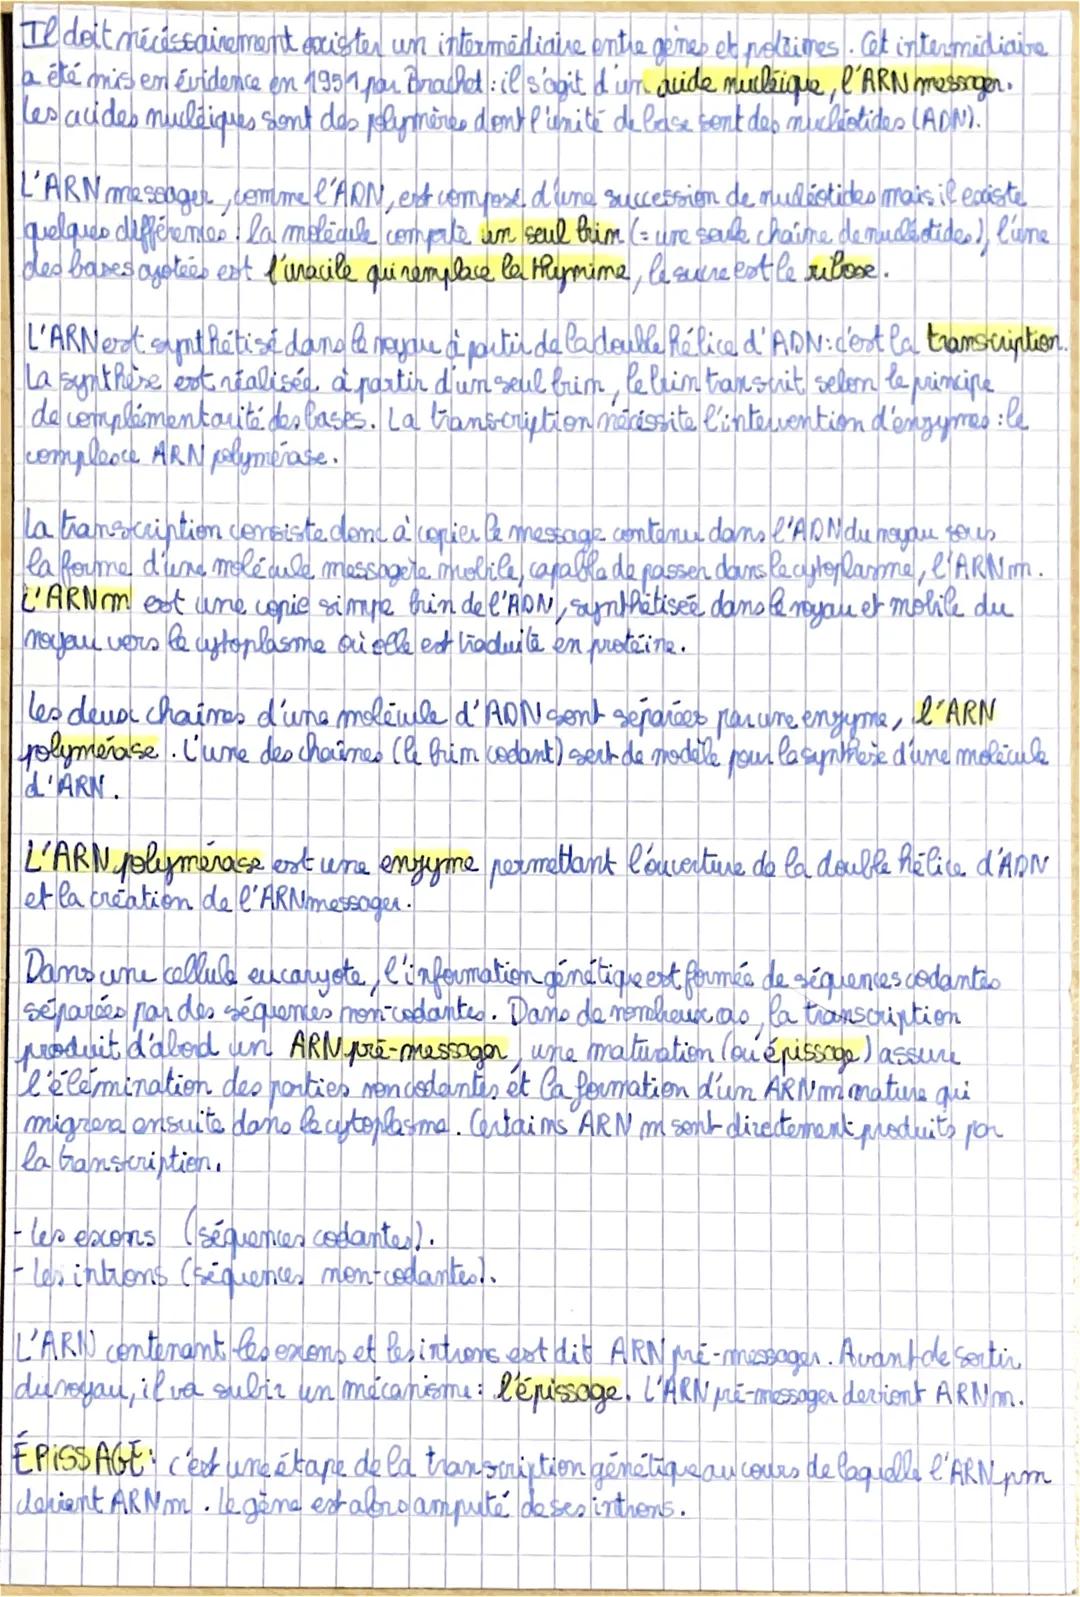 Il doit nécessairement exister un intermédiaire entre gènes et protéines. Cet intermédiaire
a été mis en évidence en 1951 par Brachet : il s'agit d'un acide nucléique, l'ARN messager.
Les acides nucléiques sont des polymères dont l'unité de base sont des nucléotides (ADN).
L'ARN messager, comme l'ADN, est composé d'une succession de nucléotides mais il existe
quelques différences : la molécule comporte un seul brin (= une seule chaîne de nucléotides), l'une
des bases azotées est l'uracile qui remplace la thymine, le sucre est le ribose.
L'ARN est synthétisé dans le noyau à partir de la double hélice d'ADN : c'est la transcription.
La synthèse est réalisée à partir d'un seul brin, le brin transcrit selon le principe
de complémentarité des bases. La transcription nécessite l'intervention d'enzymes : le
complexe ARN polymérase.
La transcription consiste donc à copier le message contenu dans l'ADN du noyau sous
la forme d'une molécule messagère mobile, capable de passer dans le cytoplasme, l'ARNm.
L'ARNm est une copie simpe brin de l'ADN, synthétisée dans le noyau et mobile du
noyau vers le cytoplasme où elle est traduite en protéine.
Les deux chaînes d'une molécule d'ADN sont séparées par une enzyme, l'ARN
polymérase. L'une des chaînes (le brin codant) sert de modèle pour la synthèse d'une molécule
d'ARN.
L'ARN polymérase est une enzyme permettant l'ouverture de la double hélice d'ADN
et la création de l'ARN messager.
Dans une cellule eucaryote, l'information génétique est formée de séquences codantes
séparées par des séquences non-codantes. Dans de nombreux cas, la transcription
produit d'abord un ARN pré-messager, une maturation (ou épissage) assure
l'élémination des parties non codantes et la formation d'un ARNm mature qui
migrera ensuite dans le cytoplasme. Certains ARNm sont directement produits par
la transcription.
- les exons (séquences codantes).
- les introns (séquences non-codantes).
L'ARN contenant les exons et les introns est dit ARN pré-messager. Avant de sortir
du noyau, il va subir un mécanisme : l'épissage. L'ARN pré-messager devient ARNm.
ÉPISSAGE : c'est une étape de la transcription génétique au cours de laquelle l'ARN pm
devient ARNm. Le gène est alors amputé de ses introns.